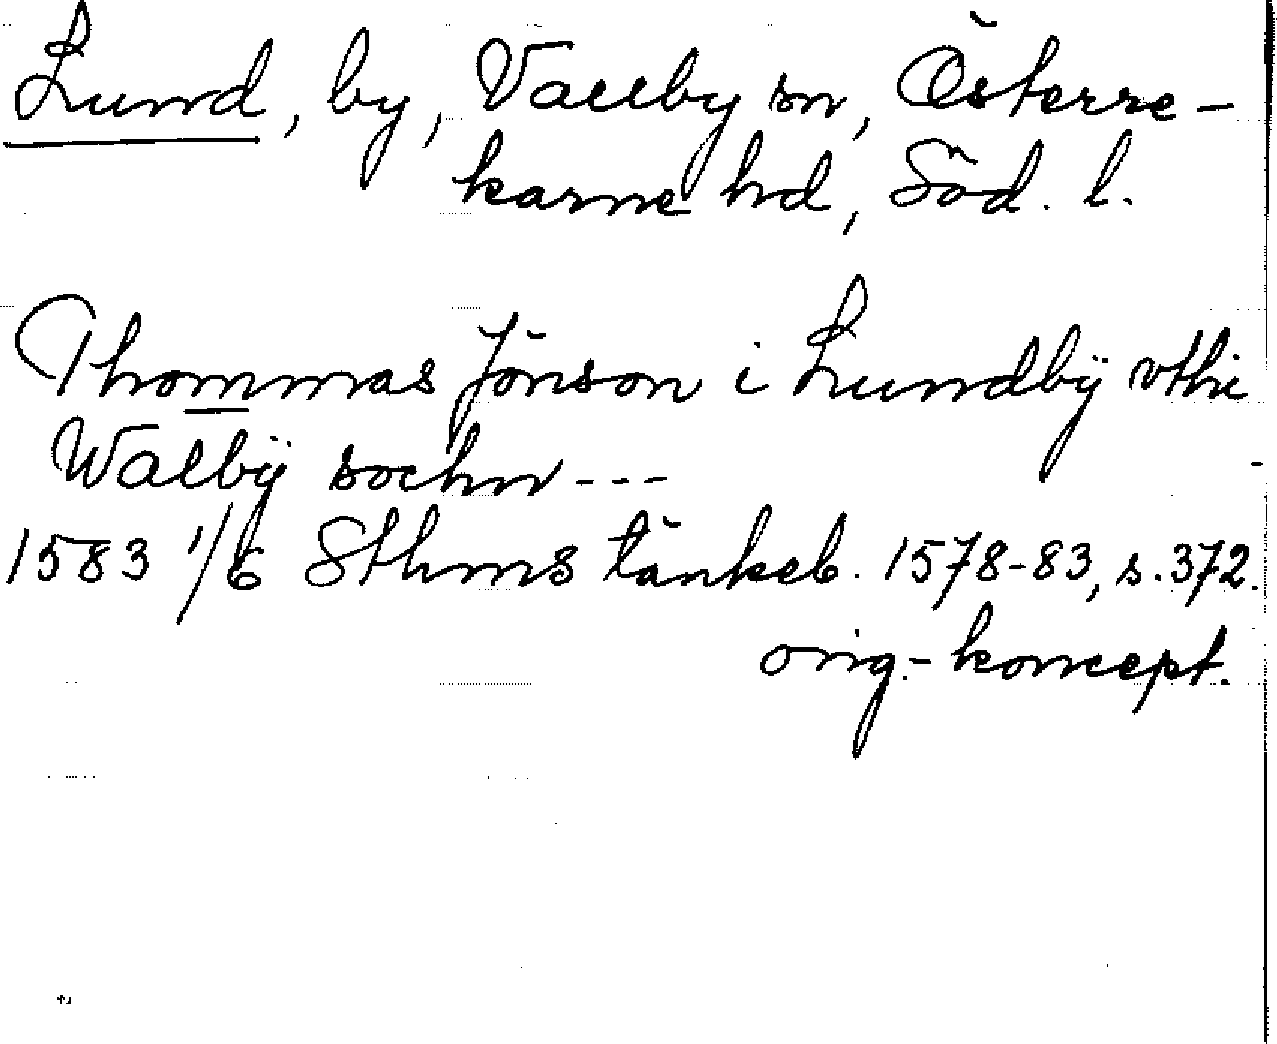 Lund, by, Vallby sn, Österre-
karne hd, Söd. l.
Thommas Jönson i Lundbÿ vthi
Walbÿ sochn ---
1583 1/6 Sthms tänkeb. 1578-83, s. 372.
orig.-koncept.